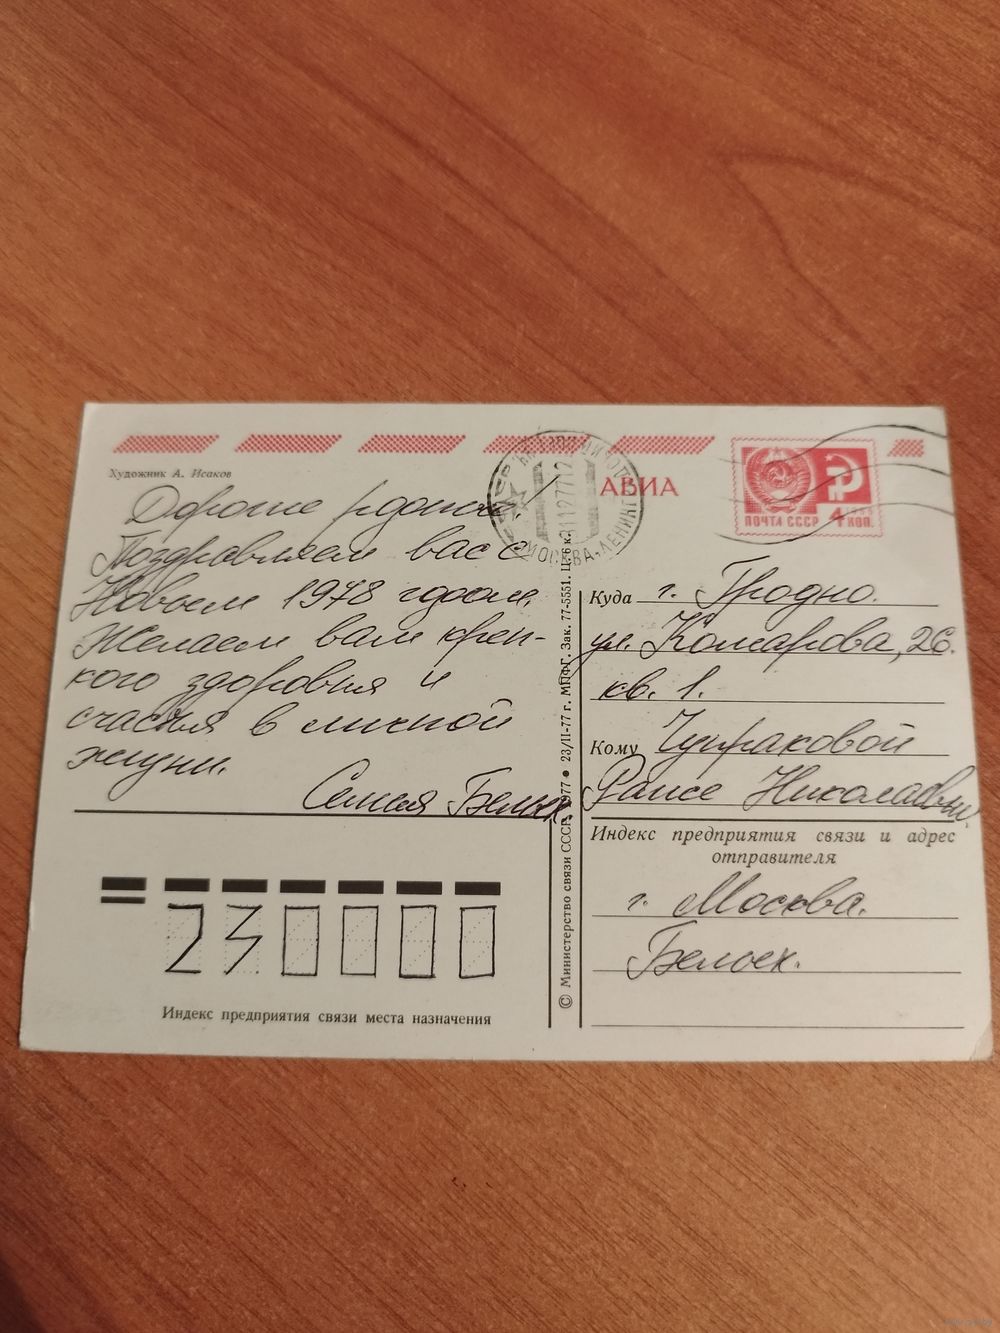 Художник А. Исаков
Дорогие родные!
Поздравляем вас с
Новым 1978 годом.
Желаем вам креп-
кого здоровья и
счастья в личной
жизни.
Семья Белых.
230000
Индекс предприятия связи места назначения
© Министерство связи СССР. 1977 ● 23/II-77 г. МПФГ. Зак. 77-5551. Ц. 6 к.
АВИА
МОСКВА-ЛЕНИНГ
31127712
ПОЧТА СССР 4 КОП.
Куда г. Гродно.
ул. Комарова, 26.
кв. 1.
Кому Чупраковой
Раисе Николаевне.
Индекс предприятия связи и адрес
отправителя
г. Москва.
Белых.